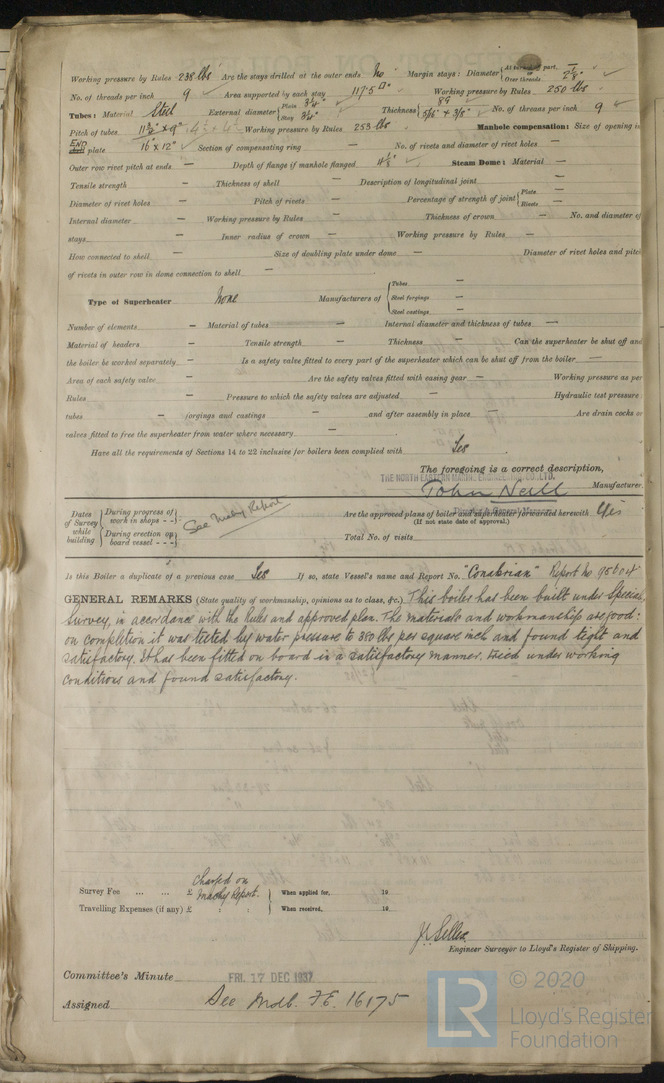 Working pressure by Rules 238 lbs Are the stays drilled at the outer ends No Margin stays: Diameter { At turned off part, or Over threads 2 1/8"
No. of threads per inch 9 Area supported by each stay 117.5 □" Working pressure by Rules 250 lbs
Tubes: Material Steel External diameter { Plain 3 1/4" Stay 3 1/4" Thickness { 8G 5/16" & 3/8" No. of threads per inch 9
Pitch of tubes Working pressure by Rules 253 lbs Manhole compensation: Size of opening in
END plate 16" x 12" Section of compensating ring — No. of rivets and diameter of rivet holes —
Outer row rivet pitch at ends — Depth of flange if manhole flanged Steam Dome: Material —
Tensile strength — Thickness of shell — Description of longitudinal joint —
Diameter of rivet holes — Pitch of rivets — Percentage of strength of joint { Plate — Rivets —
Internal diameter — Working pressure by Rules — Thickness of crown — No. and diameter of
stays — Inner radius of crown — Working pressure by Rules —
How connected to shell — Size of doubling plate under dome — Diameter of rivet holes and pitch
of rivets in outer row in dome connection to shell —
Type of Superheater None Manufacturers of { Tubes — Steel forgings — Steel castings —
Number of elements — Material of tubes — Internal diameter and thickness of tubes —
Material of headers — Tensile strength — Thickness — Can the superheater be shut off and
the boiler be worked separately — Is a safety valve fitted to every part of the superheater which can be shut off from the boiler —
Area of each safety valve — Are the safety valves fitted with easing gear — Working pressure as per
Rules — Pressure to which the safety valves are adjusted — Hydraulic test pressure:
tubes — forgings and castings — and after assembly in place — Are drain cocks or
valves fitted to free the superheater from water where necessary —
Have all the requirements of Sections 14 to 22 inclusive for boilers been complied with Yes
The foregoing is a correct description,
THE NORTH EASTERN MARINE ENGINEERING CO. LTD.
John Neill Manufacturer.
Dates of Survey while building { During progress of work in shops - - } { During erection on board vessel - - - } See Mchy Report
Are the approved plans of boiler and superheater forwarded herewith Yes
(If not state date of approval.)
Total No. of visits
Is this Boiler a duplicate of a previous case Yes If so, state Vessel's name and Report No. Report No
GENERAL REMARKS (State quality of workmanship, opinions as to class, &c.) This boiler has been built under Special
Survey, in accordance with the Rules and approved plan. The materials and workmanship are good:
on completion it was tested by water pressure to 380 lbs per square inch and found tight and
satisfactory. It has been fitted on board in a satisfactory manner. Tried under working
conditions and found satisfactory.
Survey Fee ... ... £ Charged on Machy Report. When applied for, 19
Travelling Expenses (if any) £ : : When received, 19
Engineer Surveyor to Lloyd's Register of Shipping.
Committee's Minute FRI. 17 DEC 1937
Assigned See Mdb. F.E. 16175
© 2020
LR
Lloyd's Register
Foundation